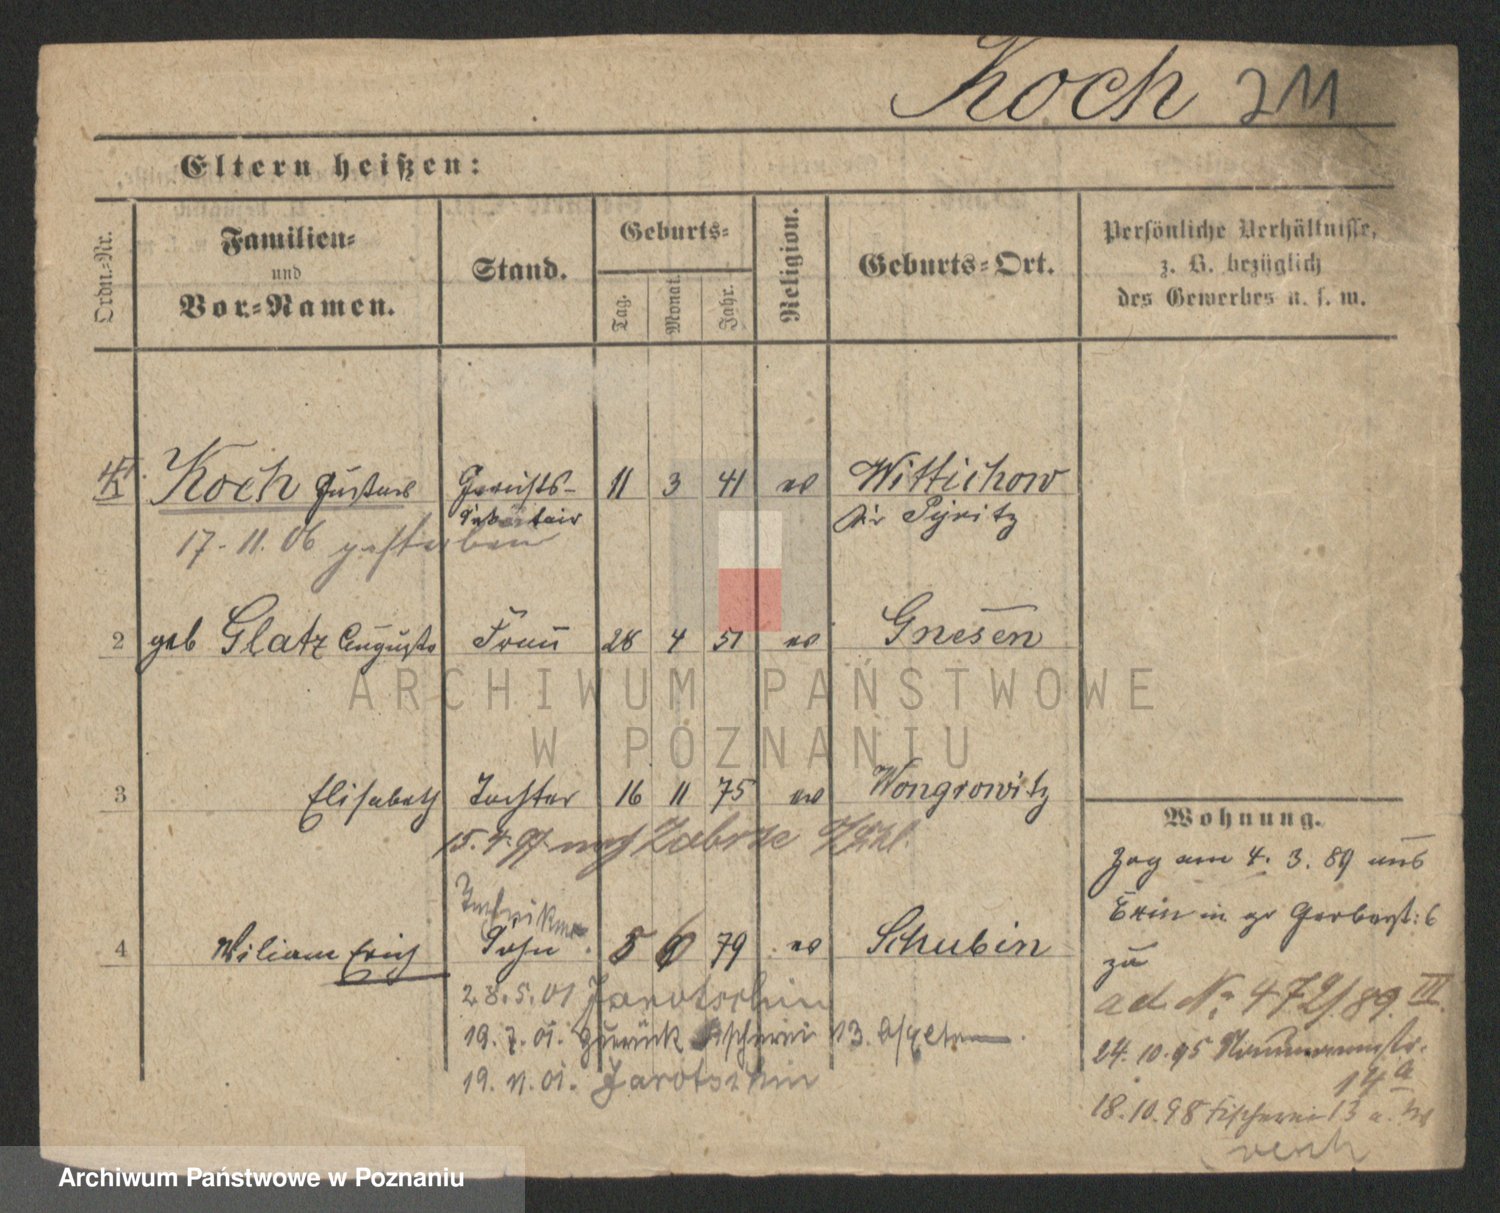 Koch 211
Eltern heißen:
Ordn.-Nr.
Familien-
und
Vor-Namen.
Stand.
Geburts-
Tag.
Monat.
Jahr.
Religion.
Geburts-Ort.
Persönliche Verhältnisse,
z. B. bezüglich
des Gewerbes u. s. w.
Koch Gustav Gerichts- 11 3 41 ev Wittichow
Sekretair Kr Pyritz
17-11.06 gestorben
2 geb Glatz Auguste Frau 28 4 51 ev Gnesen
ARCHIWUM PAŃSTWOWE
W POZNANIU
3 Elisabeth Tochter 16 11 75 ev Wongrowitz
15.4.97 nach Zabrze
Wohnung.
Zog am 4. 3. 89 aus
Exin in gr Gerberst: 6
zu
Techniker
4 Wiliam Erich Sohn 5 6 79 ev Schubin
ad. No. 472/89. III.
28.5.01 Jarotschin
19.7.01. zurück Fischerei 13. b/Eltern.
19.11.01. Jarotschin
24.10.95 Naumannstr.
14a
18.10.98 Fischerei 13
Archiwum Państwowe w Poznaniu